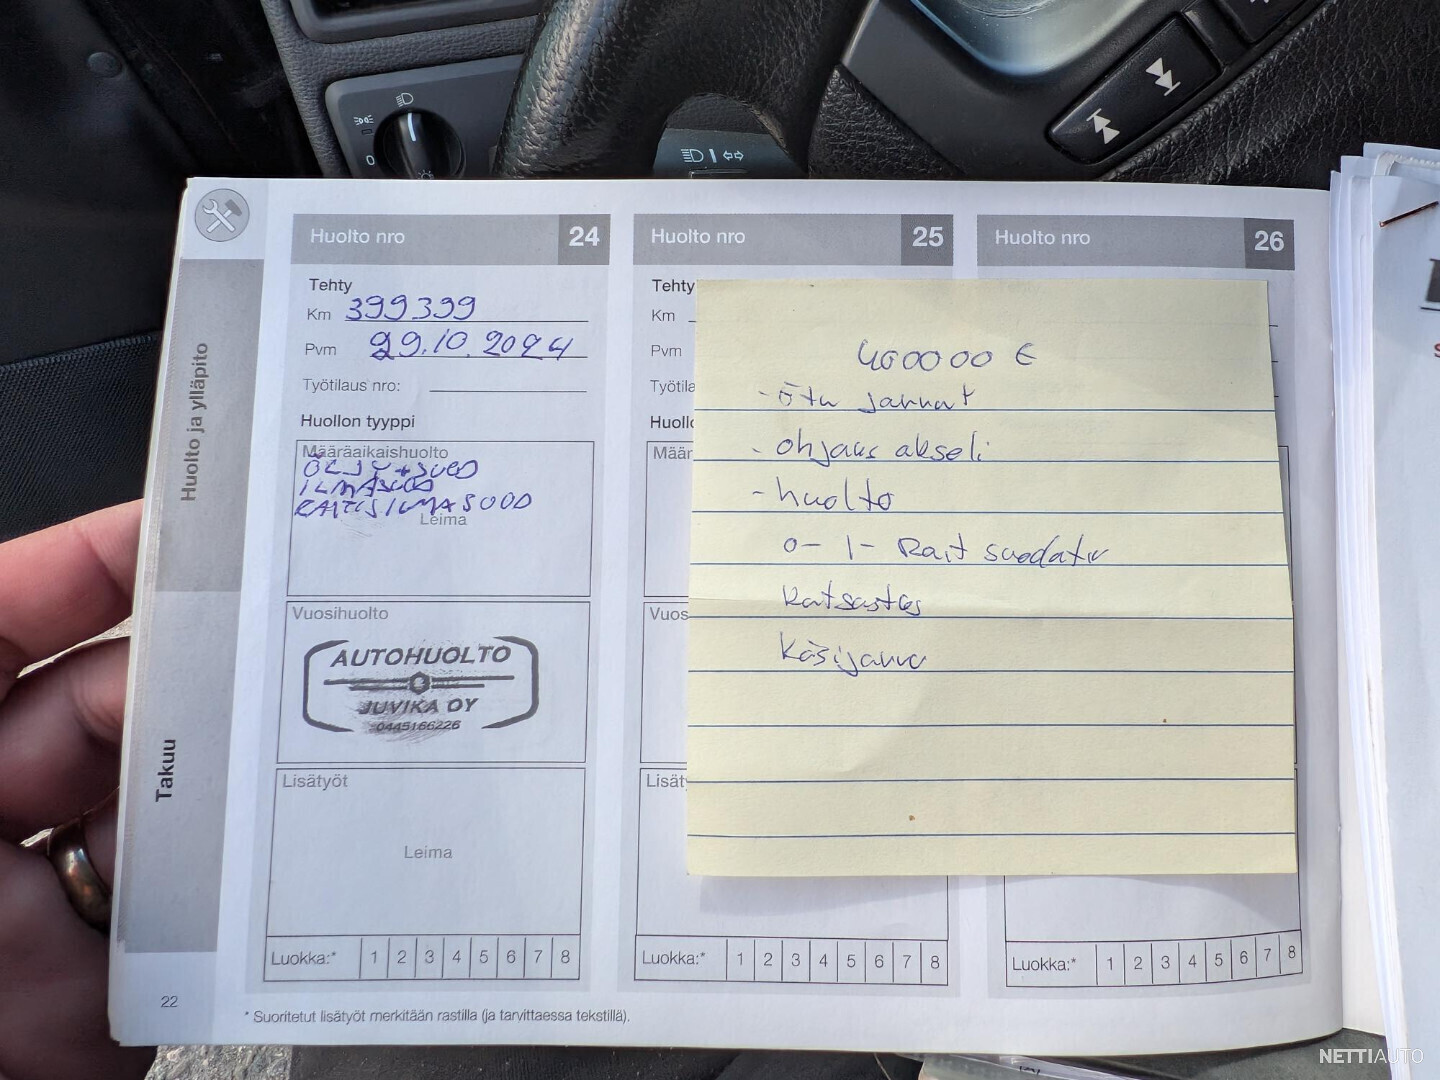 Huolto ja ylläpito
Takuu
Huolto nro 24
Tehty
Km 399399
Pvm 29.10.2024
Työtilaus nro:
Huollon tyyppi
Määräaikaishuolto
ÖLJY+SUOD
ILMASUOD
RAITISILMASUOD
Leima
Vuosihuolto
AUTOHUOLTO
JUVIKA OY
0445166226
Lisätyöt
Leima
Luokka:* 1 2 3 4 5 6 7 8
Huolto nro 25
Tehty
Km
Pvm
Työtila
Huoll
Määr
Vuos
Lisäty
Luokka:* 1 2 3 4 5 6 7 8
Huolto nro 26
Luokka:* 1 2 3 4 5 6 7 8
400000 €
- Etu jarrut
- ohjaus akseli
- huolto
0- 1- Rait suodatin
Katsastus
Käsijarru
22
* Suoritetut lisätyöt merkitään rastilla (ja tarvittaessa tekstillä).
0
NETTIAUTO